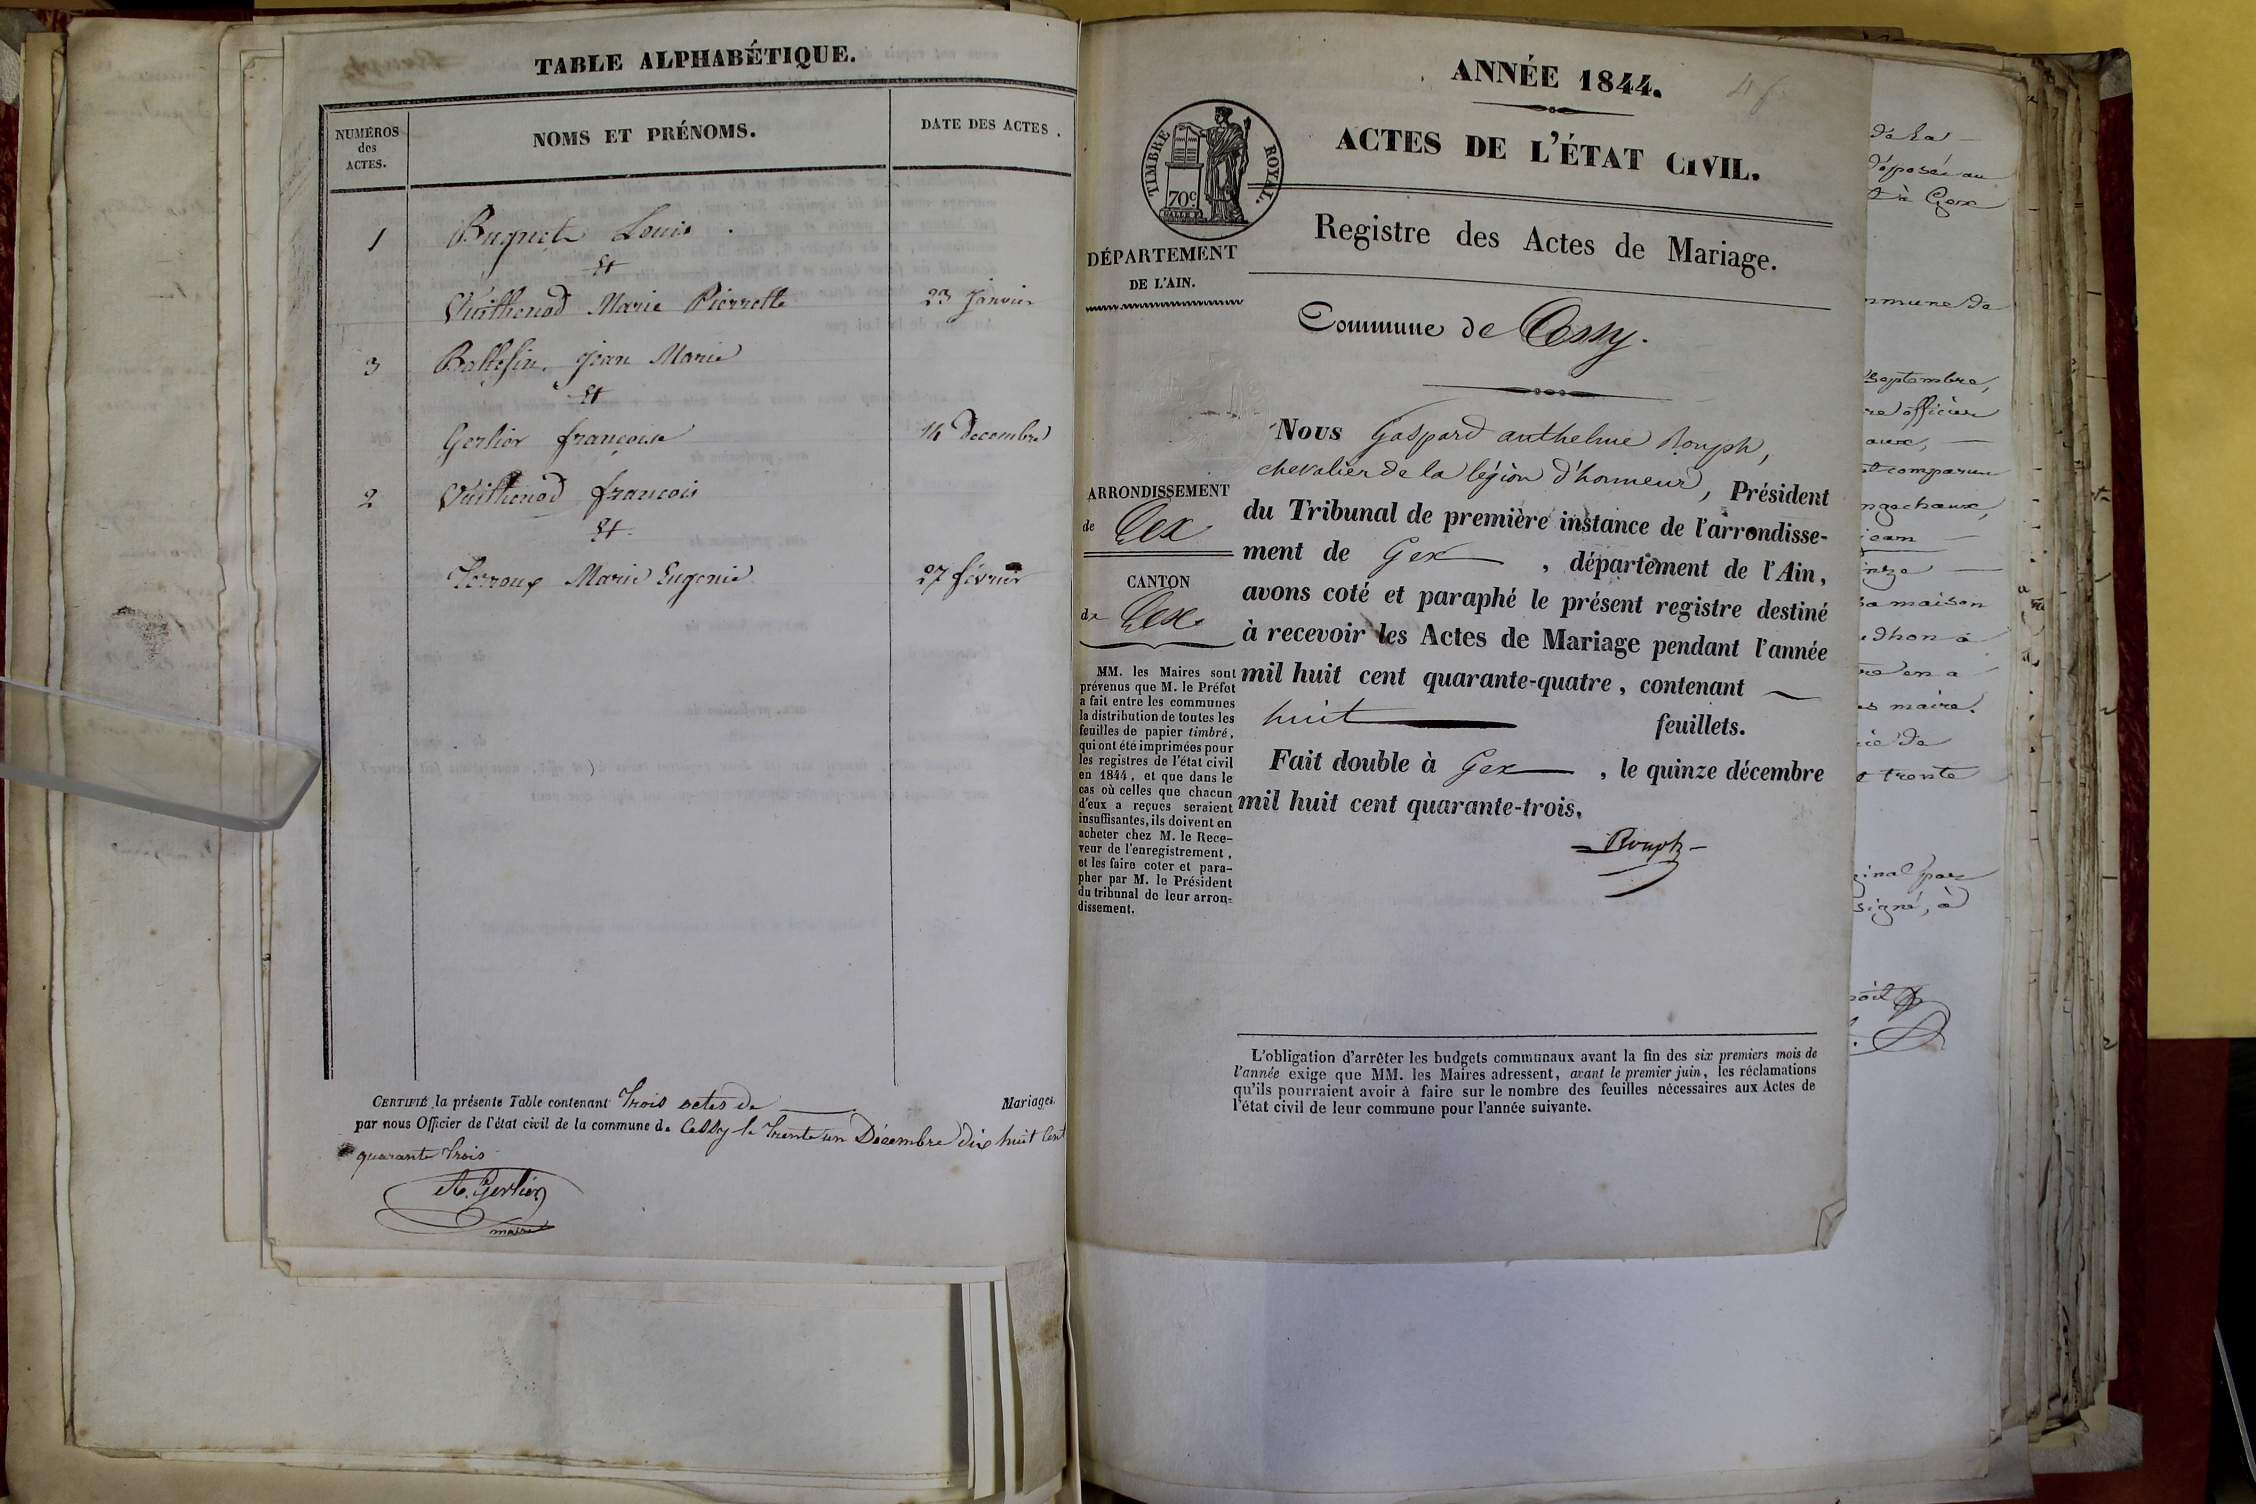 TABLE ALPHABÉTIQUE.
NUMÉROS
des
ACTES.
NOMS ET PRÉNOMS.
DATE DES ACTES.
1 Louis
Et
Vuithenod Marie Pierrette 23 Janvier
3 Jean Marie
Et
Gerlier françoise 14 Decembre
2 Vuithenod françois
Et
Marie Eugenie 27 février
CERTIFIÉ la présente Table contenant Trois actes de Mariages.
par nous Officier de l'état civil de la commune de Cessy le Trente un Décembre dix huit Cent
quarante Trois
A. Gerlier
maire
ANNÉE 1844.
ACTES DE L'ÉTAT CIVIL.
TIMBRE ROYAL.
70c
Registre des Actes de Mariage.
DÉPARTEMENT
DE L'AIN.
Commune de Cessy.
ARRONDISSEMENT
de Gex
CANTON
de Gex
MM. les Maires sont
prévenus que M. le Préfet
a fait entre les communes
la distribution de toutes les
feuilles de papier timbré,
qui ont été imprimées pour
les registres de l'état civil
en 1844, et que dans le
cas où celles que chacun
d'eux a reçues seraient
insuffisantes, ils doivent en
acheter chez M. le Rece-
veur de l'enregistrement,
et les faire coter et para-
pher par M. le Président
du tribunal de leur arron-
dissement.
Nous Gaspard anthelme Rouph,
chevalier de la légion d'honneur, Président
du Tribunal de première instance de l'arrondisse-
ment de Gex, département de l'Ain,
avons coté et paraphé le présent registre destiné
à recevoir les Actes de Mariage pendant l'année
mil huit cent quarante-quatre, contenant
huit feuillets.
Fait double à Gex, le quinze décembre
mil huit cent quarante-trois.
Rouph
L'obligation d'arrêter les budgets communaux avant la fin des six premiers mois de
l'année exige que MM. les Maires adressent, avant le premier juin, les réclamations
qu'ils pourraient avoir à faire sur le nombre des feuilles nécessaires aux Actes de
l'état civil de leur commune pour l'année suivante.
de la
déposé au
à Gex
septembre,
officier
maison
en a
maire.
trente
signé, à